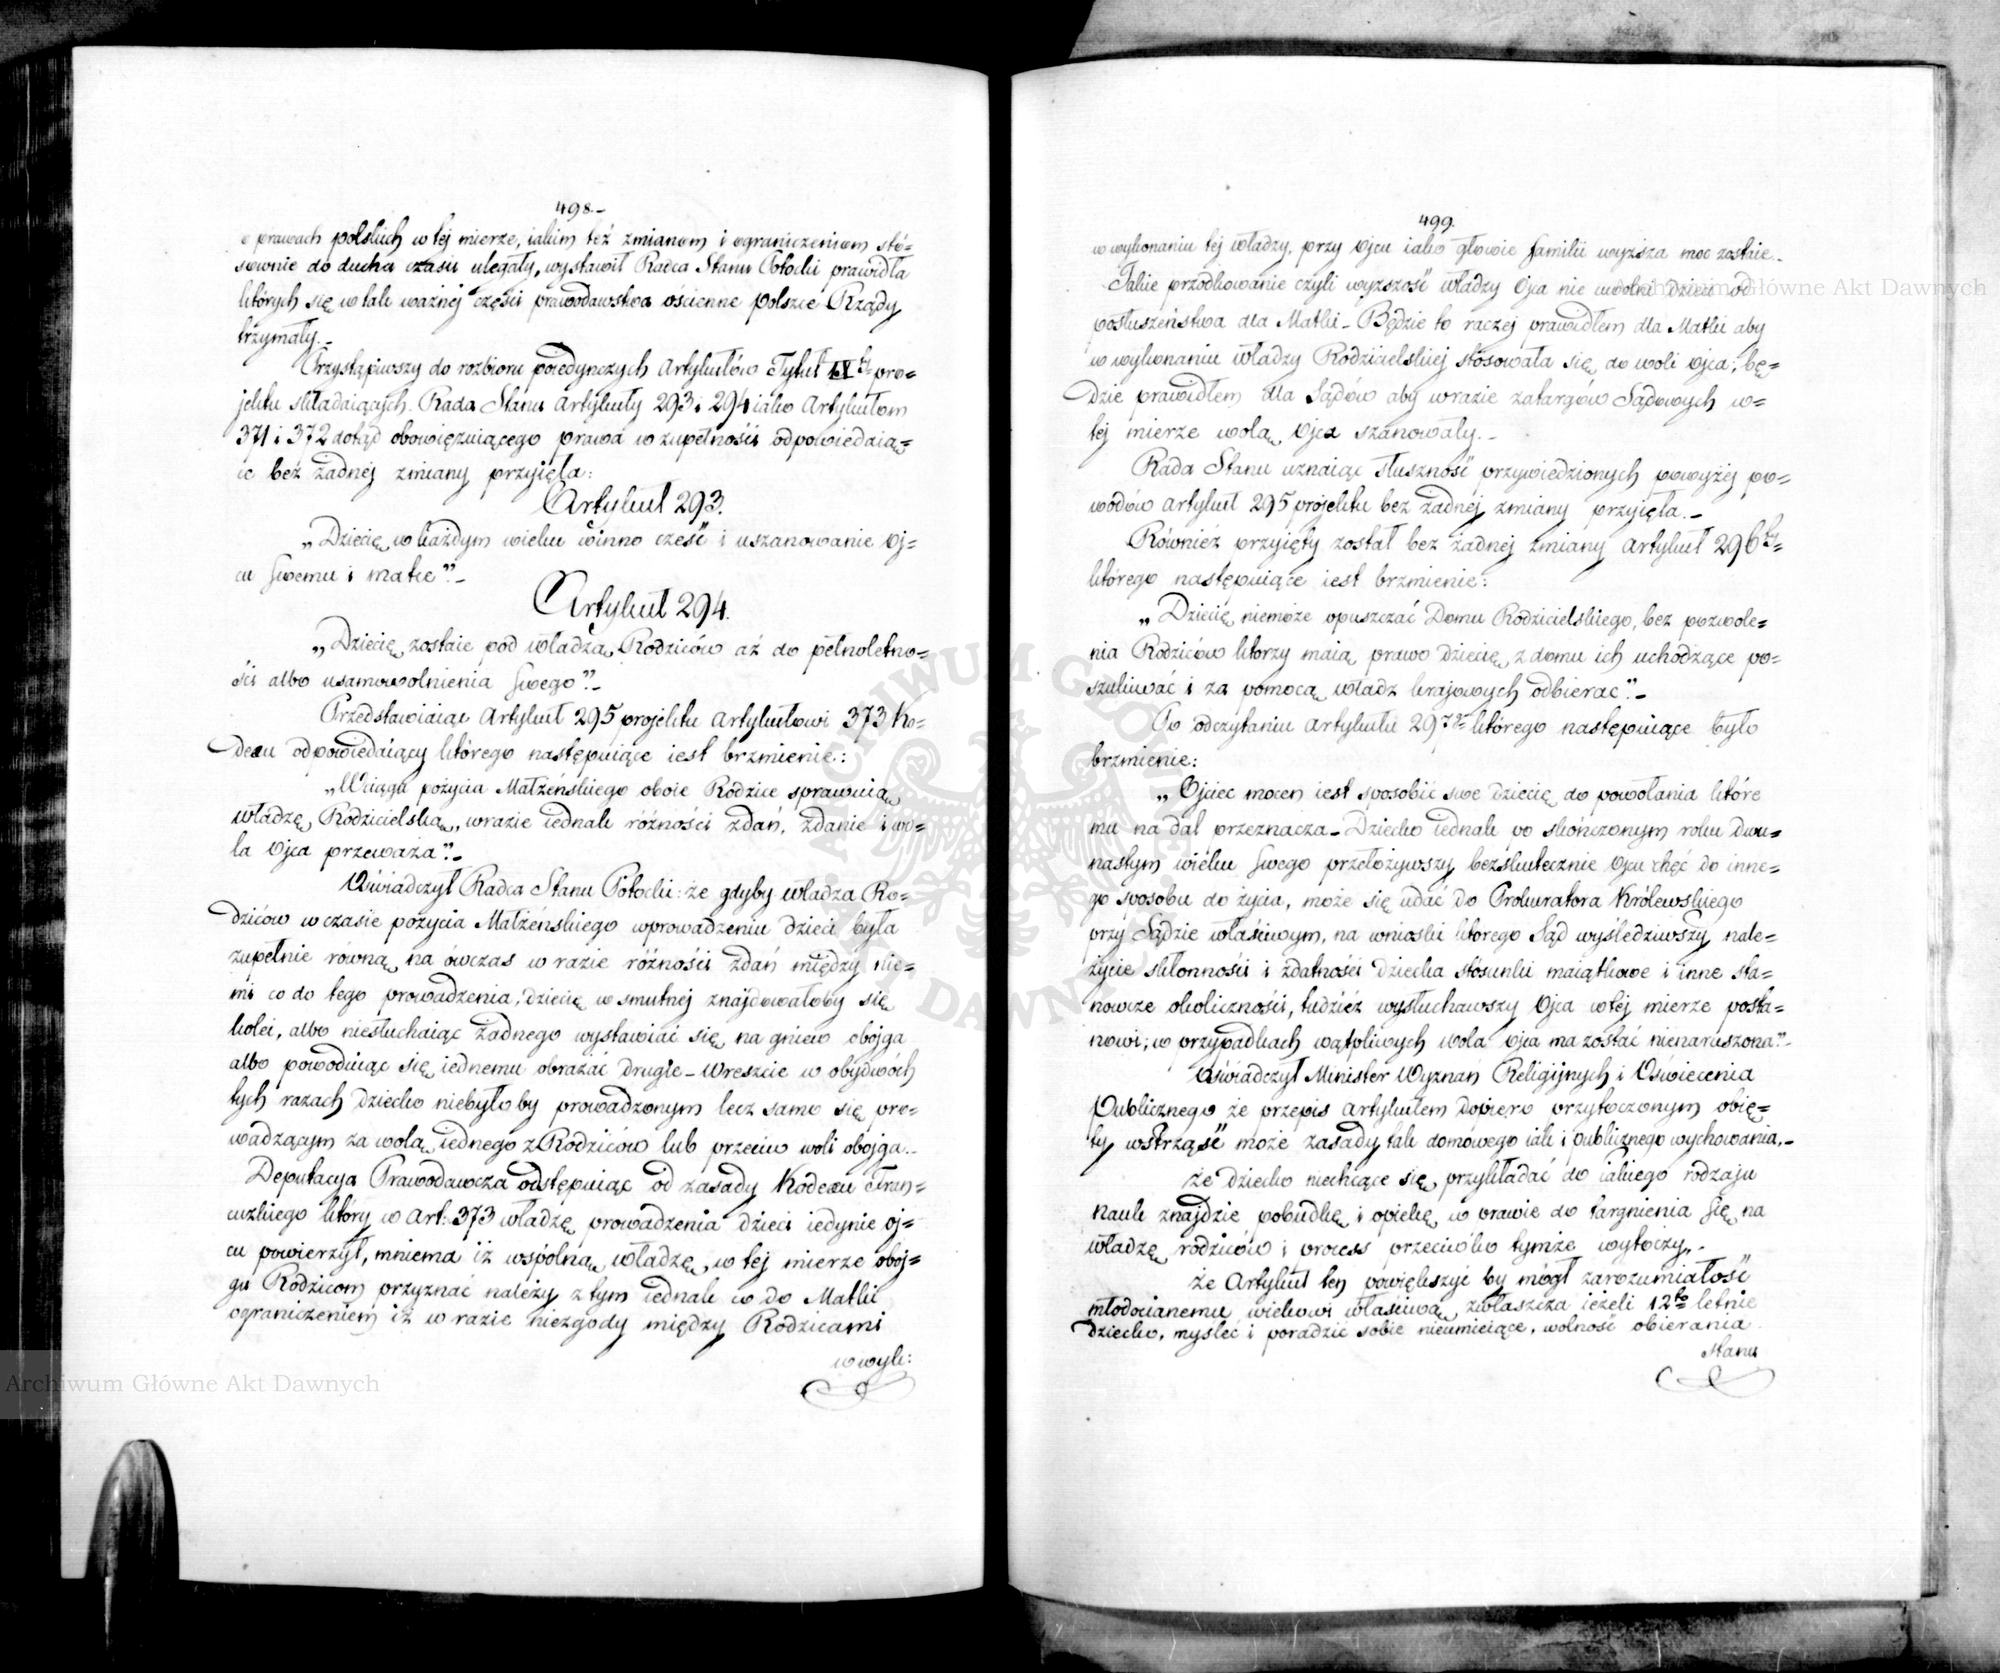 498.
o prawach polskich w tej mierze, iakim też zmianom i ograniczeniom stó=
sownie do ducha czasu ulegały, wystawił Radca Stanu Potocki prawidła
których się w tak ważnej części prawodawstwa ościenne Polszce Rządy
trzymały.
Przystąpiwszy do rozbioru poiedyńczych Artykułów Tytuł IX pro=
jektu składaiących. Rada Stanu Artykuły 293 i 294 iako Artykułom
371 i 372 dotąd obowięzuiącego prawa w zupełności odpowiedaią=
ce bez żadnej zmiany przyięła:
Artykuł 293.
„Dziecię w każdym wieku winno cześć i uszanowanie Oj=
cu swemu i matce".
Artykuł 294.
„Dziecię zostaie pod władzą Rodziców aż do pełnoletno=
ści albo usamowolnienia swego".
Przedstawiaiąc Artykuł 295 projektu Artykułowi 373 Ko=
dexu odpowiedaiący którego następuiące iest brzmienie:
„W ciągu pożycia Małżeńskiego oboie Rodzice sprawuią
władzę Rodzicielską, w razie iednak różności zdań, zdanie i wo=
la Ojca przeważa".
Oświadczył Radca Stanu Potocki: że gdyby władza Ro=
dziców w czasie pożycia Małżeńskiego w prowadzeniu dzieci była
zupełnie równą na ówczas w razie różności zdań między nie=
mi co do tego prowadzenia, dziecię w smutnej znajdowałoby się
kolei, albo niesłuchaiąc żadnego wystawiać się na gniew obojga
albo powoduiąc się iednemu obrażać drugie – Wreszcie w obydwóch
tych razach dziecko niebyłoby prowadzonym lecz samo się pro=
wadzącym za wolą iednego z Rodziców lub przeciw woli obojga.
Deputacya Prawodawcza odstępuiąc od zasady Kodexu Fran=
cuzkiego który w Art: 373 władzę prowadzenia dzieci iedynie oj=
cu powierzył, mniema iż wspólną władzę, w tej mierze oboj=
gu Rodzicom przyznać należy z tym iednak co do Matki
ograniczeniem iż w razie niezgody między Rodzicami
w wyk:
499.
w wykonaniu tej władzy, przy Ojcu iako głowie familii wyższa moc zostaie.
Takie przodkowanie czyli wyższość władzy Ojca nie uwolni dzieci od
posłuszeństwa dla Matki – Będzie to raczej prawidłem dla Matki aby
w wykonaniu władzy Rodzicielskiej stosowała się do woli Ojca; bę=
dzie prawidłem dla Sądów aby w razie zatargów Sądowych w=
tej mierze wolą Ojca szanowały.
Rada Stanu uznaiąc słuszność przywiedzionych powyżej po=
wodów Artykuł 295 projektu bez żadnej zmiany przyięła.
Również przyięty został bez żadnej zmiany Artykuł 296ty
którego następuiące iest brzmienie:
„Dziecię niemoże opuszczać Domu Rodzicielskiego, bez pozwole=
nia Rodziców którzy maią prawo dziecię z domu ich uchodzące po=
szukiwać i za pomocą władz krajowych odbierać".
Po odczytaniu Artykułu 297go którego następuiące było
brzmienie:
„Ojciec mocen iest sposobić swe dziecię do powołania które
mu na dal przeznacza – Dziecko iednak po skończonym roku dwu=
nastym wieku swego przełożywszy bezskutecznie Ojcu chęć do inne=
go sposobu do życia, może się udać do Prokuratora Królewskiego
przy Sądzie właściwym, na wnioski którego Sąd wyśledziwszy nale=
życie skłonności i zdatności dziecka stósunki maiątkowe i inne sta=
nowcze okoliczności, tudzież wysłuchawszy Ojca w tej mierze posta=
nowi; w przypadkach wątpliwych wola Ojca ma zostać nienaruszona".
Oświadczył Minister Wyznań Religijnych i Oświecenia
Publicznego że przepis Artykułem dopiero przytoczonym obię=
ty wstrząść może zasady tak domowego iak i publicznego wychowania,
że dziecko niechcące się przykładać do iakiego rodzaju
nauk znajdzie pobudkę i opiekę w prawie do targnienia się na
władzę rodziców i process przeciwko tymże wytoczy,
że Artykuł ten powiększyć by mógł zarozumiałość
młodocianemu wiekowi właściwą, zwłaszcza ieżeli 12to letnie
dziecko, myśleć i poradzić sobie nieumieiące, wolność obierania
stanu
Archiwum Główne Akt Dawnych
Archiwum Główne Akt Dawnych
ARCHIWUM GŁÓWNE AKT DAWNYCH